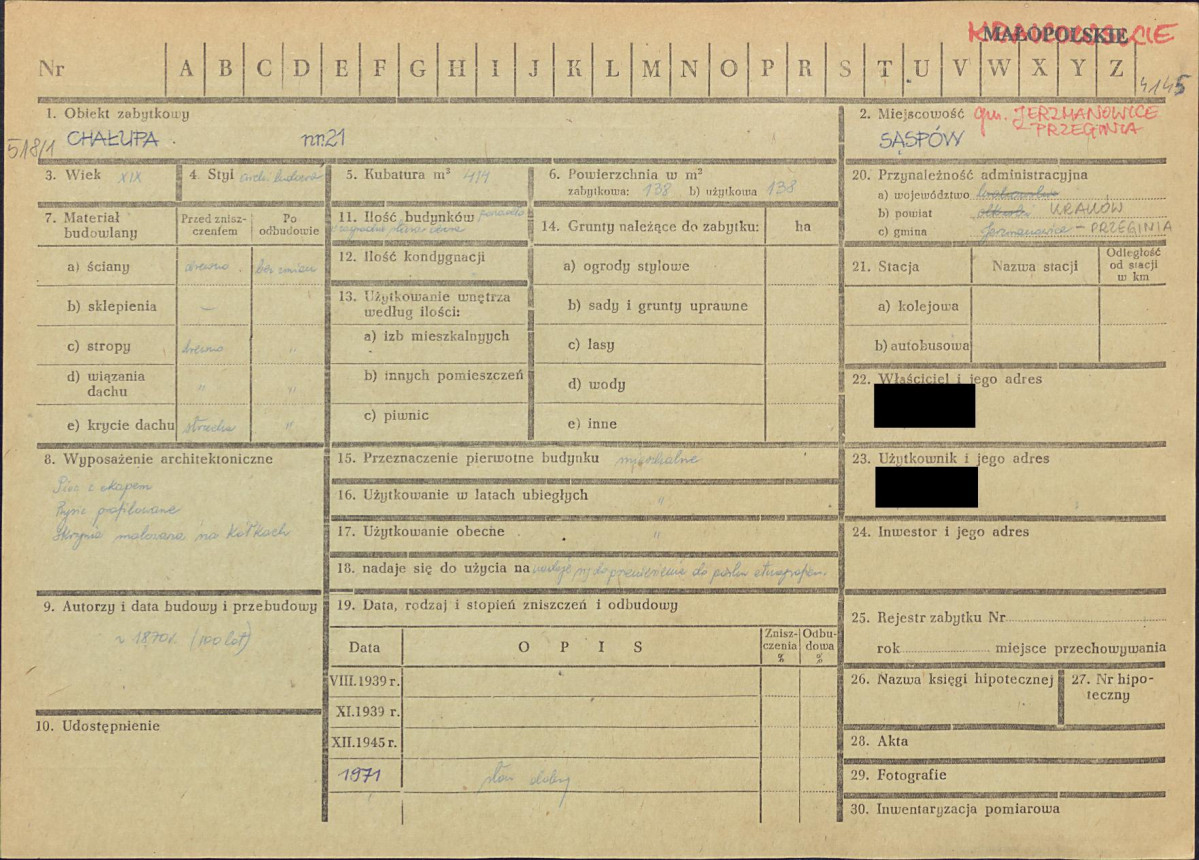 MAŁOPOLSKIE
Nr A B C D E F G H I J K L M N O P R S T U V W X Y Z
4145
1. Obiekt zabytkowy
518/1 CHAŁUPA nr.21
2. Miejscowość gm. JERZMANOWICE
- PRZEGINIA
SĄSPÓW
3. Wiek XIX
4. Styl
5. Kubatura m³ 414
6. Powierzchnia w m²
zabytkowa: 138 b) użytkowa 138
20. Przynależność administracyjna
a) województwo krakowskie
b) powiat olkuski KRAKÓW
c) gmina Jerzmanowice - PRZEGINIA
7. Materiał budowlany
Przed znisz-czeniem
Po odbudowie
a) ściany drewno bez zmian
b) sklepienia –
c) stropy drewno "
d) wiązania dachu " "
e) krycie dachu strzecha "
11. Ilość budynków
12. Ilość kondygnacji
13. Użytkowanie wnętrza według ilości:
a) izb mieszkalnych
b) innych pomieszczeń
c) piwnic
14. Grunty należące do zabytku: ha
a) ogrody stylowe
b) sady i grunty uprawne
c) lasy
d) wody
e) inne
21. Stacja Nazwa stacji Odległość od stacji w km
a) kolejowa
b) autobusowa
22. Właściciel i jego adres
23. Użytkownik i jego adres
24. Inwestor i jego adres
8. Wyposażenie architektoniczne
Piec z okapem
Rysie profilowane
Skrzynia malowana na kółkach
15. Przeznaczenie pierwotne budynku mieszkalne
16. Użytkowanie w latach ubiegłych "
17. Użytkowanie obecne "
18. nadaje się do użycia na nadaje się do przeniesienia do parku etnografen.
9. Autorzy i data budowy i przebudowy
~ 1870 r. (100 lat)
10. Udostępnienie
19. Data, rodzaj i stopień zniszczeń i odbudowy
Data OPIS Znisz-czenia % Odbu-dowa %
VIII.1939 r.
XI.1939 r.
XII.1945 r.
1971 stan dobry
25. Rejestr zabytku Nr
rok miejsce przechowywania
26. Nazwa księgi hipotecznej
27. Nr hipo-teczny
28. Akta
29. Fotografie
30. Inwentaryzacja pomiarowa